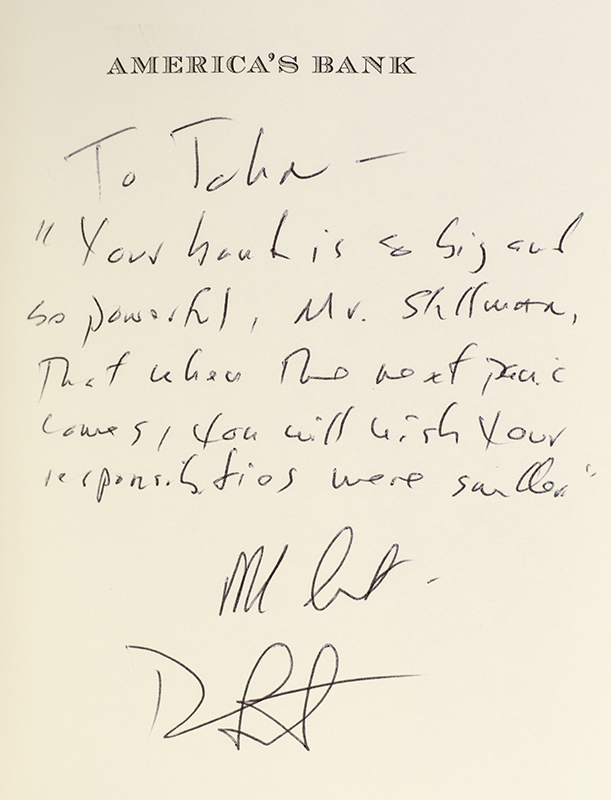 AMERICA'S BANK
To John —
"Your bank is so big and
so powerful, Mr. Stillman,
That when the next panic
comes, you will wish your
responsibilities were smaller"